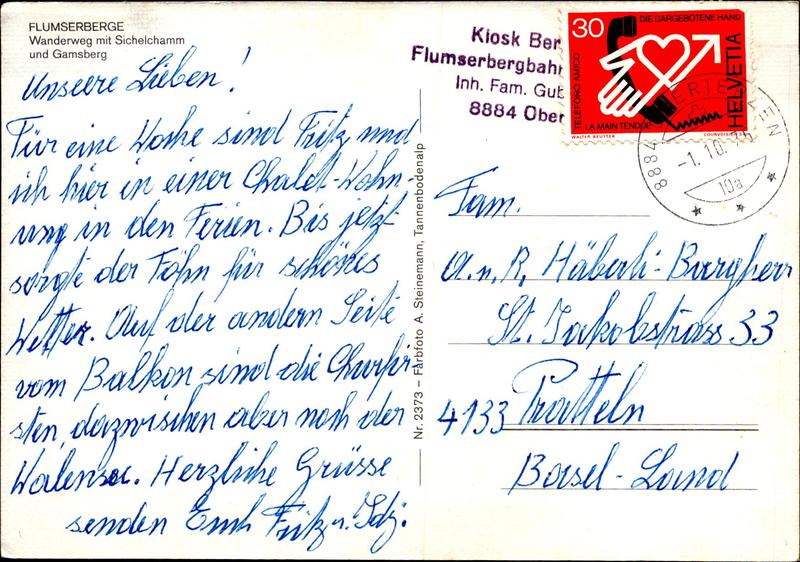 FLUMSERBERGE
Wanderweg mit Sichelchamm
und Gamsberg
Unsere Lieben!
Für eine Woche sind Fritz und
ich hier in einer Chalet-Wohn-
ung in den Ferien. Bis jetzt
sorgte der Föhn für schönes
Wetter. Auf der andern Seite
vom Balkon sind die Churfir-
sten, dazwischen aber noch der
Walensee. Herzliche Grüsse
senden Euch Fritz u. Idj.
Nr. 2373 – Farbfoto A. Steinemann, Tannenbodenalp
Kiosk Ber
Flumserbergbahn
Inh. Fam. Gub
8884 Ober
30
DIE DARGEBOTENE HAND
TELEFONO AMICO
LA MAIN TENDUE
HELVETIA
WALTER BEUTTER
COURVOISIER
8884
ERTERZEN
-1.10.75
10a
Fam.
A. u. R. Häberli-Burgherr
St. Jakobstrass 33
4133 Pratteln
Basel-Land